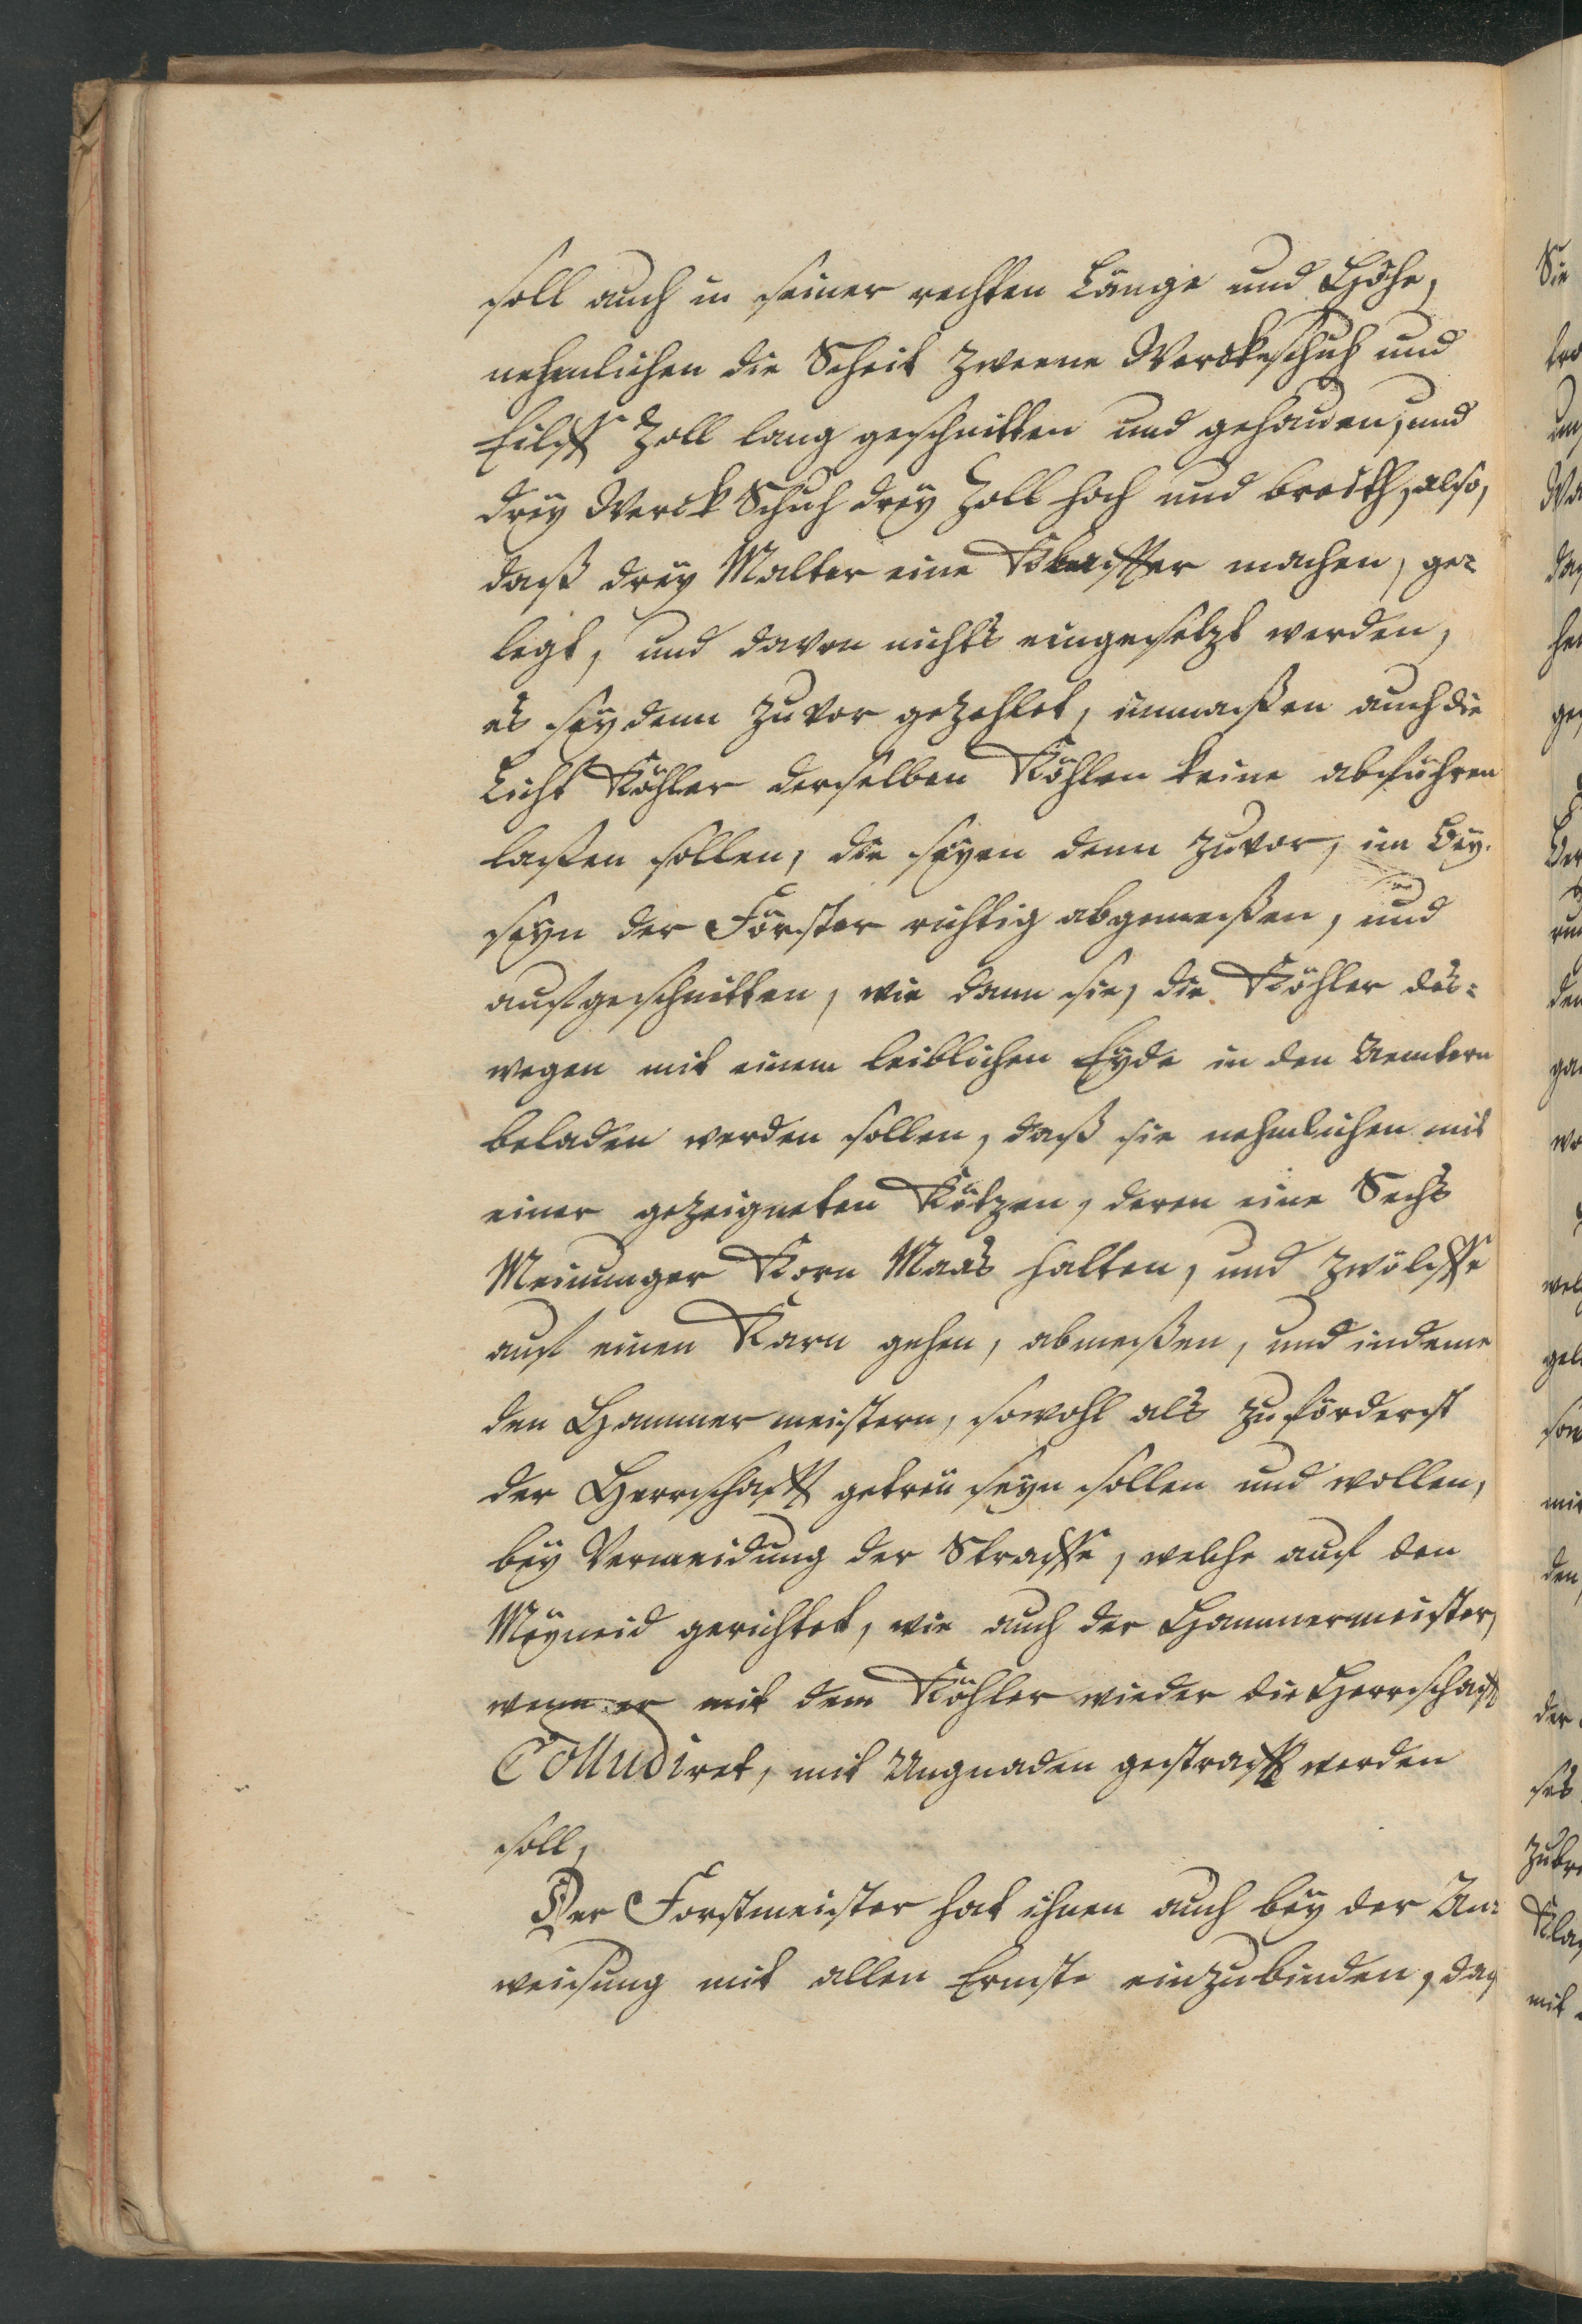 soll auch in seiner rechten Länge und Höhe,
nehmlichen die Scheit zweene Werckschuh und
Eilff Zoll lang geschnitten und gehauen, und
drey Werck Schuh drey Zoll hoch und breith, also,
daß drey Malter eine Klaffter machen, ge-
legt, und davon nichts eingesetzt werden,
es sey denn zuvor gezehlet, inmaßen auch die
Licht Köhler derselben Kohlen keine abführen
laßen sollen, die seyen denn zuvor, im Bey-
seyn der Förster richtig abgemeßen, und
aufgeschnitten, wie dann sie, die Köhler des-
wegen mit einem leiblichen Eyde in den Aemtern
beladen werden sollen, daß sie nehmlichen mit
einer gezeigneten Kötzen, deren eine Sechs
Meinunger Korn Maas halten, und zwölffe
auf einen Karn gehen, abmeßen, und indeme
den Hammermeistern, sowohl als zuförderst
der Herrschafft getreü seyn sollen und wollen,
bey Vermeidung der Straffe, welche auf den
Meyneid gerichtet, wie auch der Hammermeister,
wenn er mit dem Köhler wieder die Herrschafft
Colludiret, mit Ungnaden gestrafft werden
soll,
Der Forstmeister hat ihnen auch bey der An-
weisung mit allen Ernste einzubinden, daß